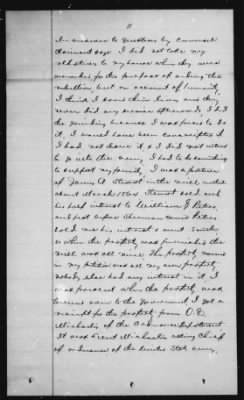 In answer to questions by Counsel
claimant says I did not take my
old sister to my house when they were
wounded for the purpose of aiding the
rebellion, but on account of humanity,
I think I done this here and they
never did any service afterward, I did
the guarding because I was forced to do
it, I would have been conscripted if
I had not done it & I did not want
to go into the army, I had to do something
to support my family, I was a partner
of James A Stewart in the mill until
about March 1864 Stewart sold out
his half interest to William J Peters,
and just before Sherman came Peters
sold me his interest & went South
& when the property was furnished the
mill was all mine. The property named
in my petition was all my own property,
nobody else had any interest in it, I
was present when the property was
turned over to the Government, I got a
receipt for the property from O. E.
Michaelis of the Ordnance Department.
It was Lieut Michaelis acting Chief
of Ordnance of the United States army,